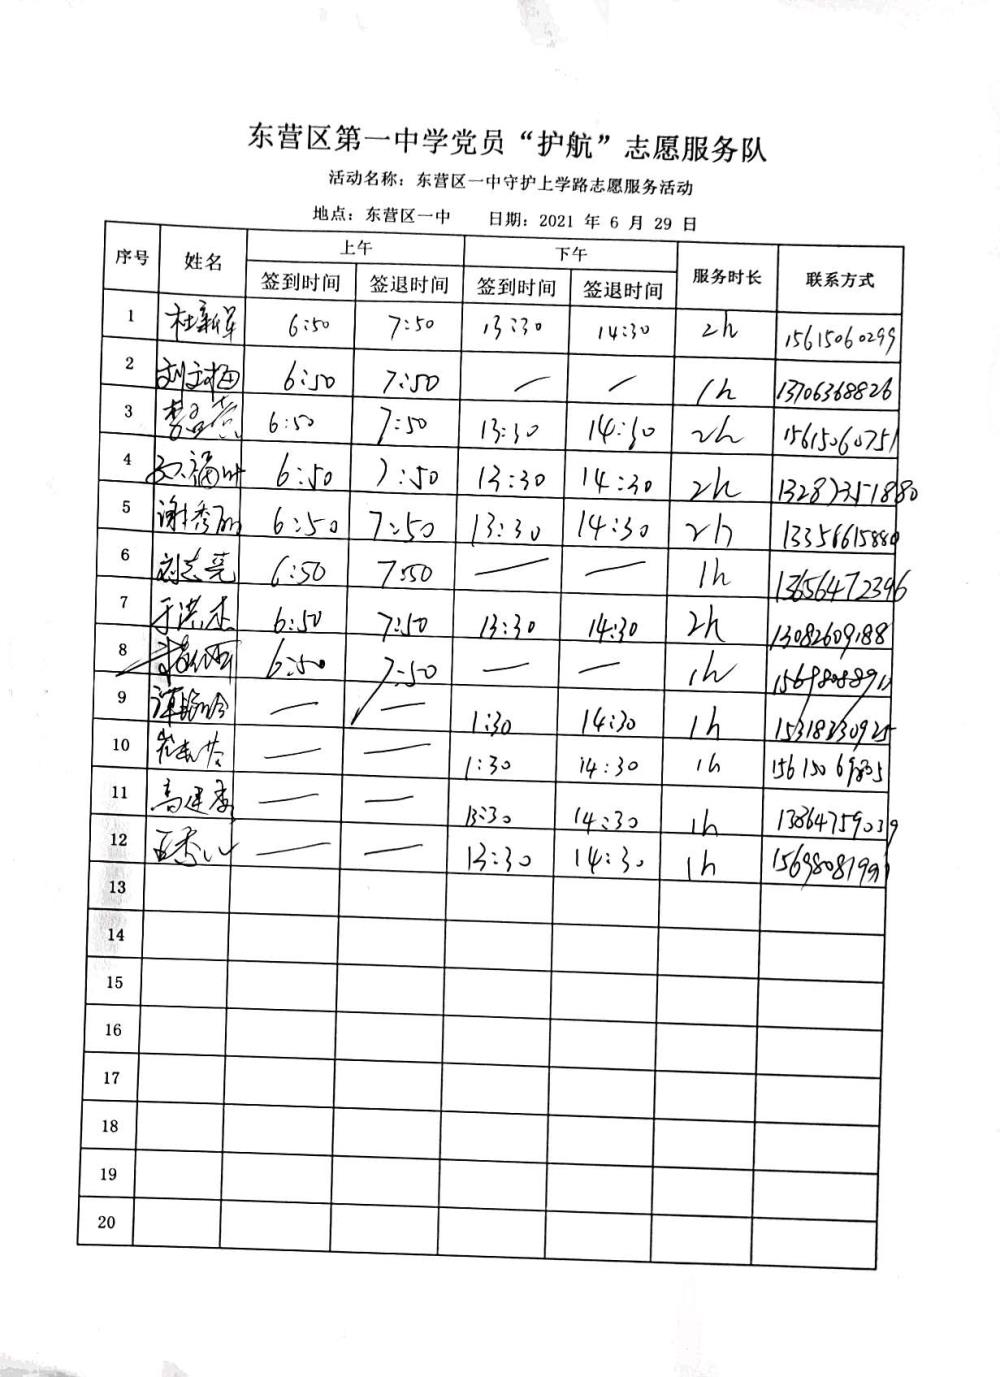 东营区第一中学党员“护航”志愿服务队
活动名称：东营区一中守护上学路志愿服务活动
地点：东营区一中 日期：2021 年 6 月 29 日
序号 姓名 上午 下午 服务时长 联系方式
签到时间 签退时间 签到时间 签退时间
1 杜新军 6:50 7:50 13:30 14:30 2h 15615060299
2 刘文梅 6:50 7:50 — — 1h 13706368826
3 6:50 7:50 13:30 14:30 2h 15615060751
4 6:50 7:50 13:30 14:30 2h 13287351880
5 谢秀丽 6:50 7:50 13:30 14:30 2h 13356615880
6 刘志亮 6:50 7:50 — — 1h 13656472396
7 于洪杰 6:50 7:50 13:30 14:30 2h 13082609188
8 6:50 7:50 — — 1h
9 — — 1:30 14:30 1h 15318230925
10 — — 1:30 14:30 1h
11 高建康 — — 13:30 14:30 1h 13864759039
12 — — 13:30 14:30 1h
13
14
15
16
17
18
19
20